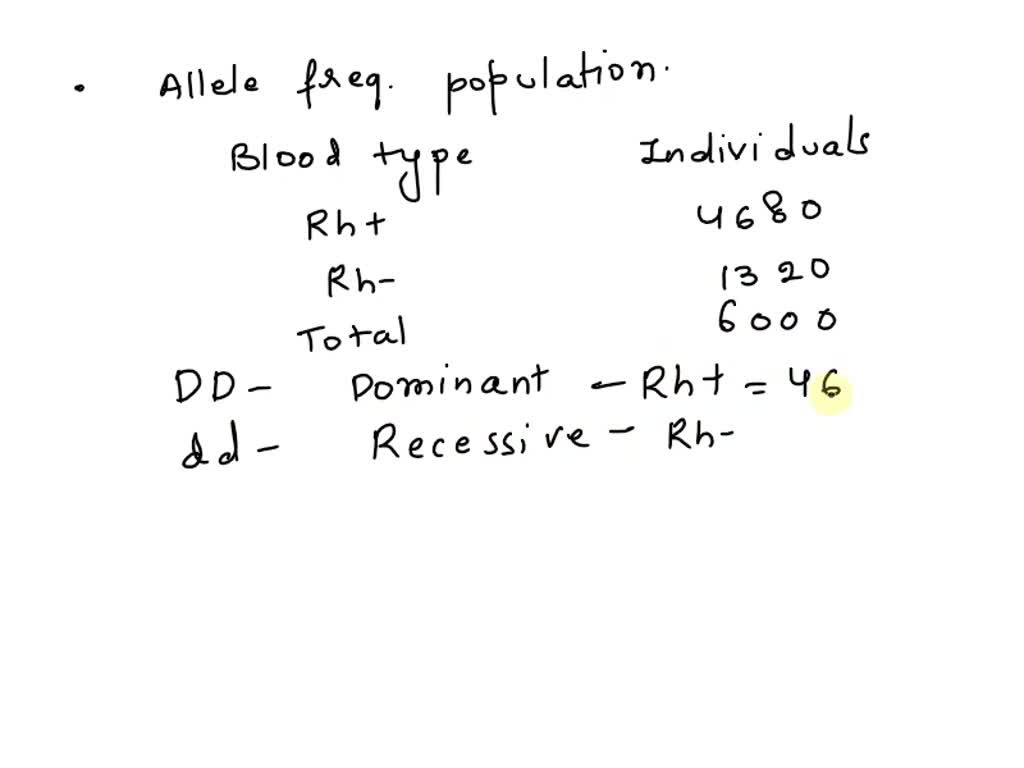 • Allele freq. population.
Blood type Individuals
Rh+ 4680
Rh- 1320
Total 6000
DD - Dominant - Rh+ = 46
dd - Recessive - Rh-